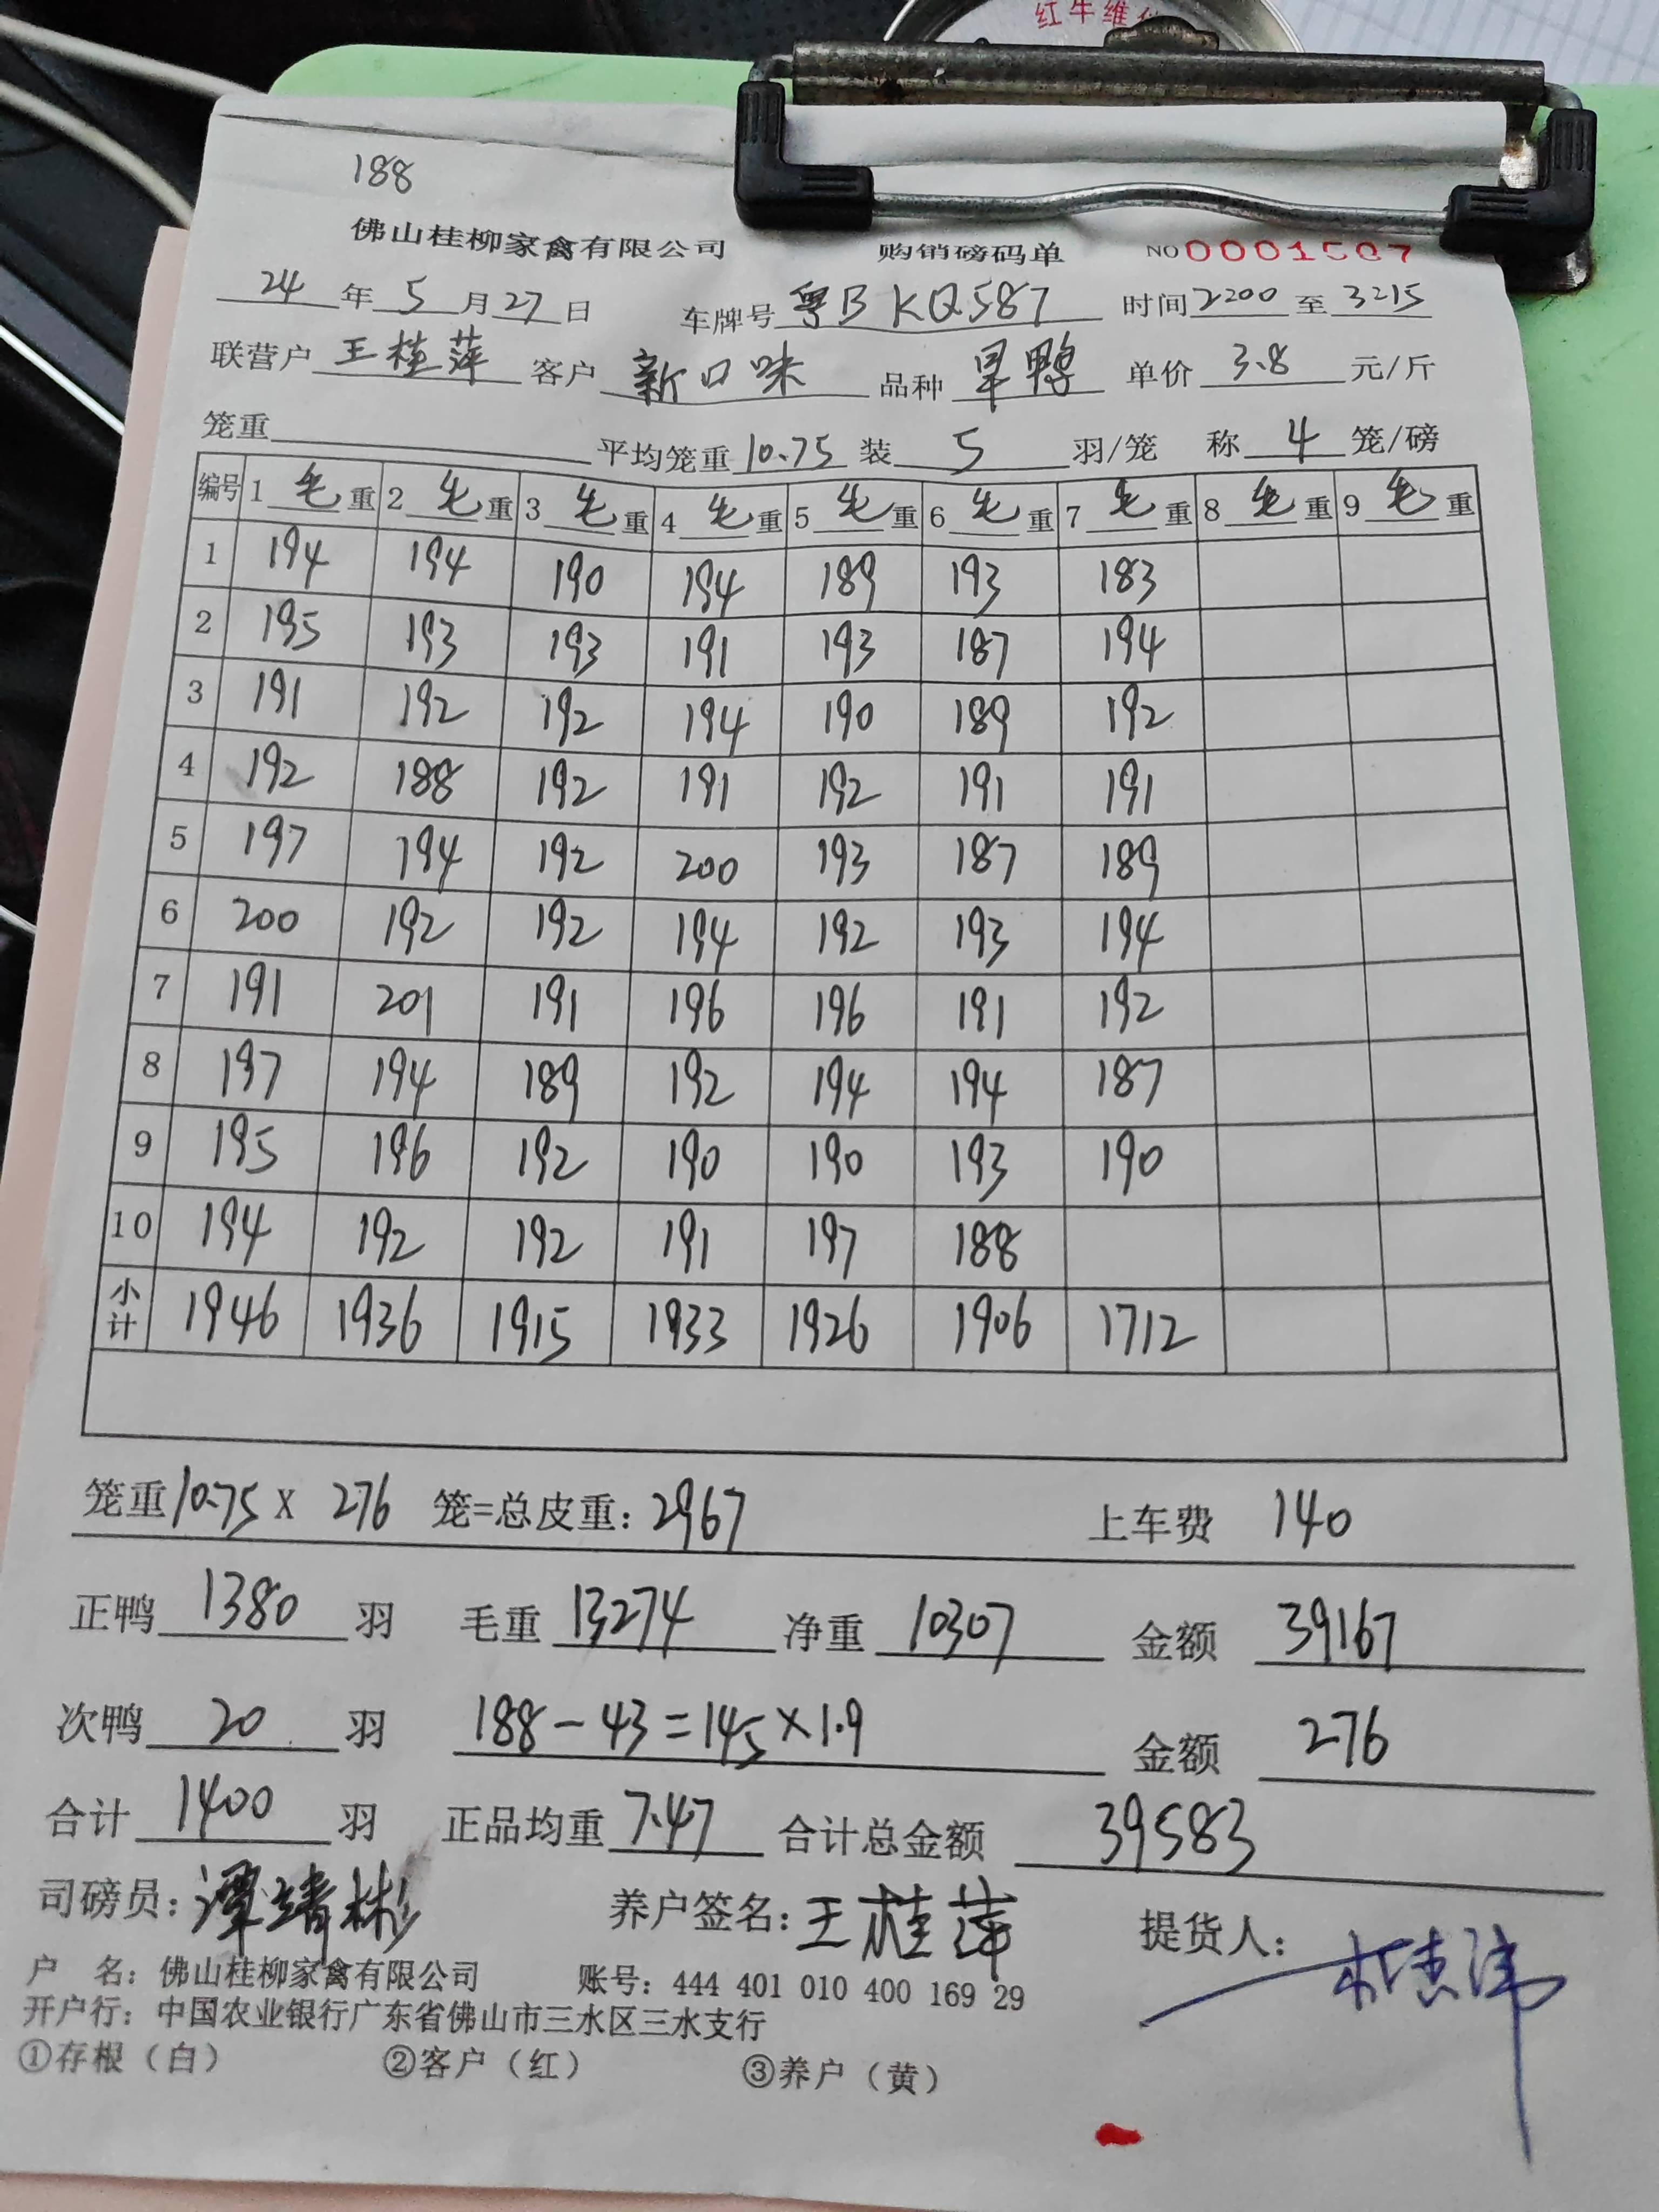 红牛维
188
佛山桂柳家禽有限公司 购销磅码单 NO 0001507
24 年 5 月 27 日 车牌号 粤B KQ587 时间 2200 至 3215
联营户 王桂萍 客户 新口味 品种 旱鸭 单价 3.8 元/斤
笼重 平均笼重 10.75 装 5 羽/笼 称 4 笼/磅
编号 1 毛 重 2 毛 重 3 毛 重 4 毛 重 5 毛 重 6 毛 重 7 毛 重 8 毛 重 9 毛 重
1 194 194 190 194 189 193 183
2 195 193 193 191 193 187 194
3 191 192 192 194 190 189 192
4 192 188 192 191 192 191 191
5 197 194 192 200 193 187 189
6 200 192 192 194 192 193 194
7 191 201 191 196 196 191 192
8 197 194 189 192 194 194 187
9 195 196 192 190 190 193 190
10 194 192 192 191 197 188
小计 1946 1936 1915 1933 1926 1906 1712
笼重 10.75 X 276 笼=总皮重: 2967 上车费 140
正鸭 1380 羽 毛重 13274 净重 10307 金额 39167
次鸭 20 羽 188-43=145×1.9 金额 276
合计 1400 羽 正品均重 7.47 合计总金额 39583
司磅员: 谭靖彬 养户签名: 王桂萍 提货人:
户 名: 佛山桂柳家禽有限公司 账号: 444 401 010 400 169 29
开户行: 中国农业银行广东省佛山市三水区三水支行
①存根（白） ②客户（红） ③养户（黄）